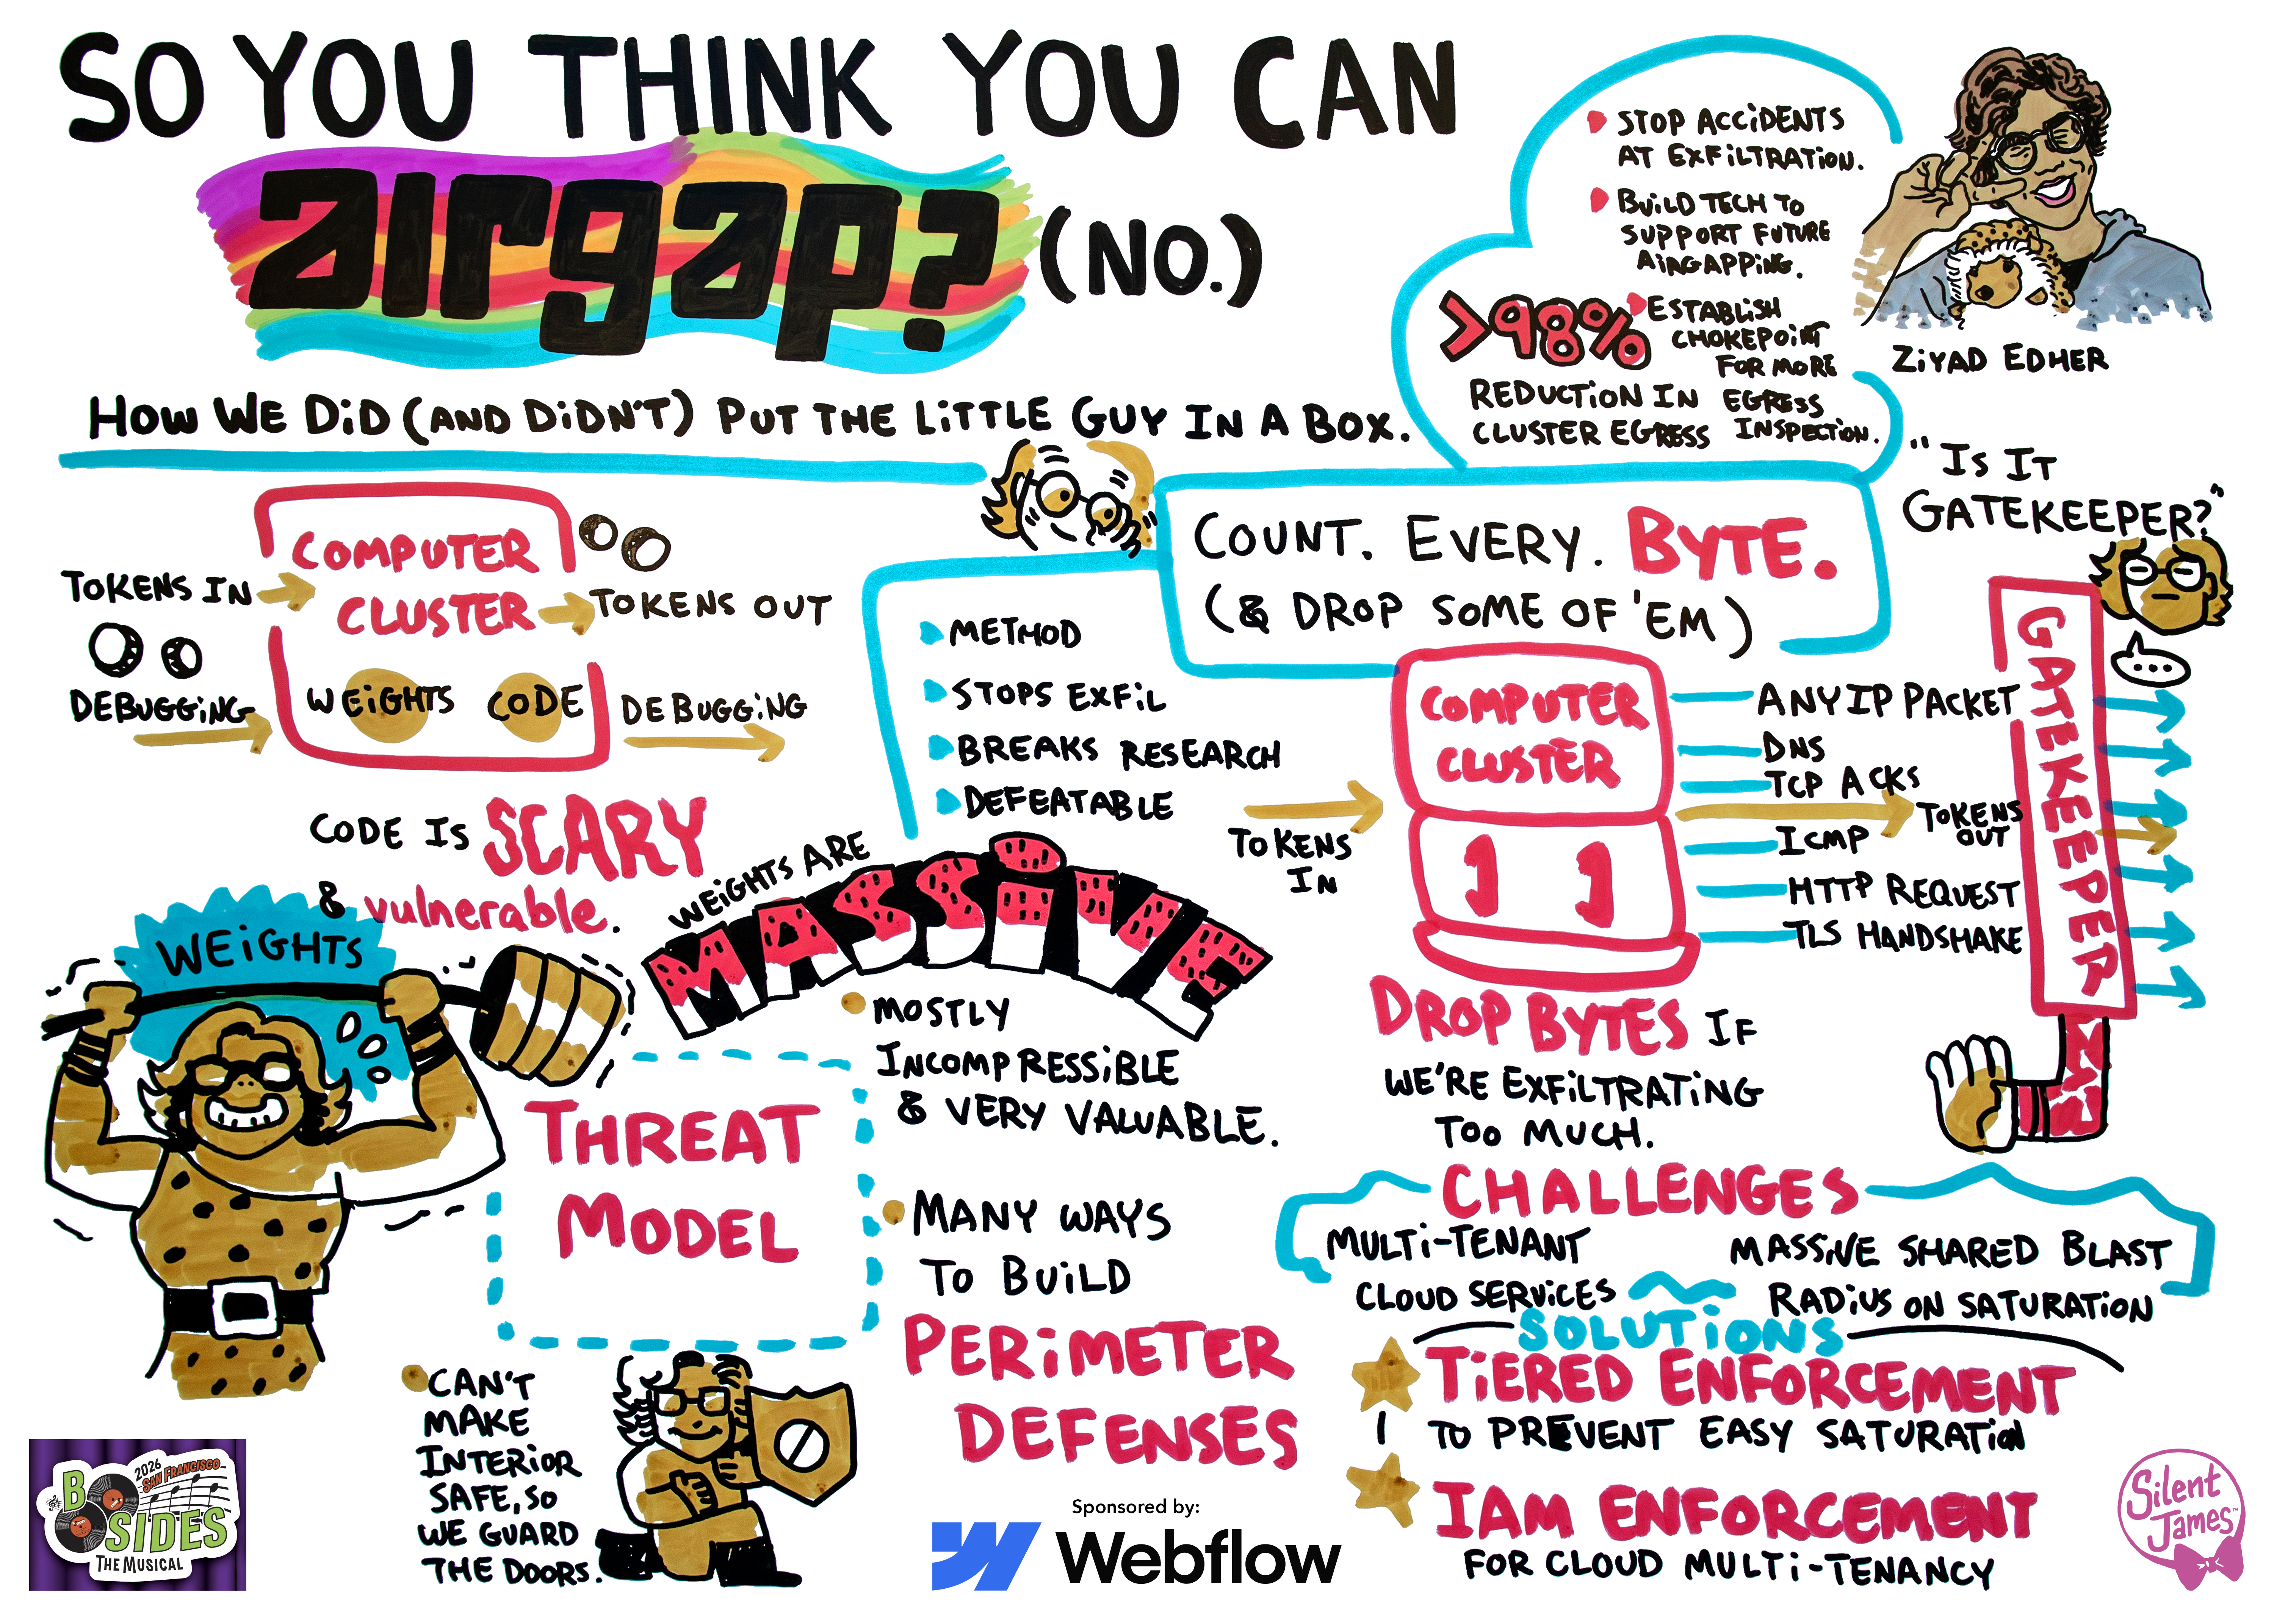 SO YOU THINK YOU CAN
airgap? (NO.)
HOW WE DID (AND DIDN'T) PUT THE LITTLE GUY IN A BOX.
STOP ACCIDENTS
AT EXFILTRATION.
BUILD TECH TO
SUPPORT FUTURE
AIRGAPPING.
ESTABLISH
CHOKEPOINT
FOR MORE
EGRESS
INSPECTION.
>98%
REDUCTION IN
CLUSTER EGRESS
ZIYAD EDHER
COMPUTER
CLUSTER
TOKENS IN
TOKENS OUT
DEBUGGING
WEIGHTS CODE
DEBUGGING
CODE IS SCARY
& vulnerable.
WEIGHTS
COUNT. EVERY. BYTE.
(& DROP SOME OF 'EM)
METHOD
STOPS EXFIL
BREAKS RESEARCH
DEFEATABLE
WEIGHTS ARE
MASSIVE
MOSTLY
INCOMPRESSIBLE
& VERY VALUABLE.
THREAT
MODEL
MANY WAYS
TO BUILD
PERIMETER
DEFENSES
CAN'T
MAKE
INTERIOR
SAFE, SO
WE GUARD
THE DOORS.
"IS IT
GATEKEEPER?"
...
TOKENS
IN
COMPUTER
CLUSTER
ANY IP PACKET
DNS
TCP ACKS
TOKENS
OUT
ICMP
HTTP REQUEST
TLS HANDSHAKE
GATEKEEPER
DROP BYTES IF
WE'RE EXFILTRATING
TOO MUCH.
CHALLENGES
MULTI-TENANT
CLOUD SERVICES
MASSIVE SHARED BLAST
RADIUS ON SATURATION
SOLUTIONS
TIERED ENFORCEMENT
TO PREVENT EASY SATURATION
IAM ENFORCEMENT
FOR CLOUD MULTI-TENANCY
2026
SAN FRANCISCO
BSIDES
THE MUSICAL
Sponsored by:
Webflow
Silent
James™